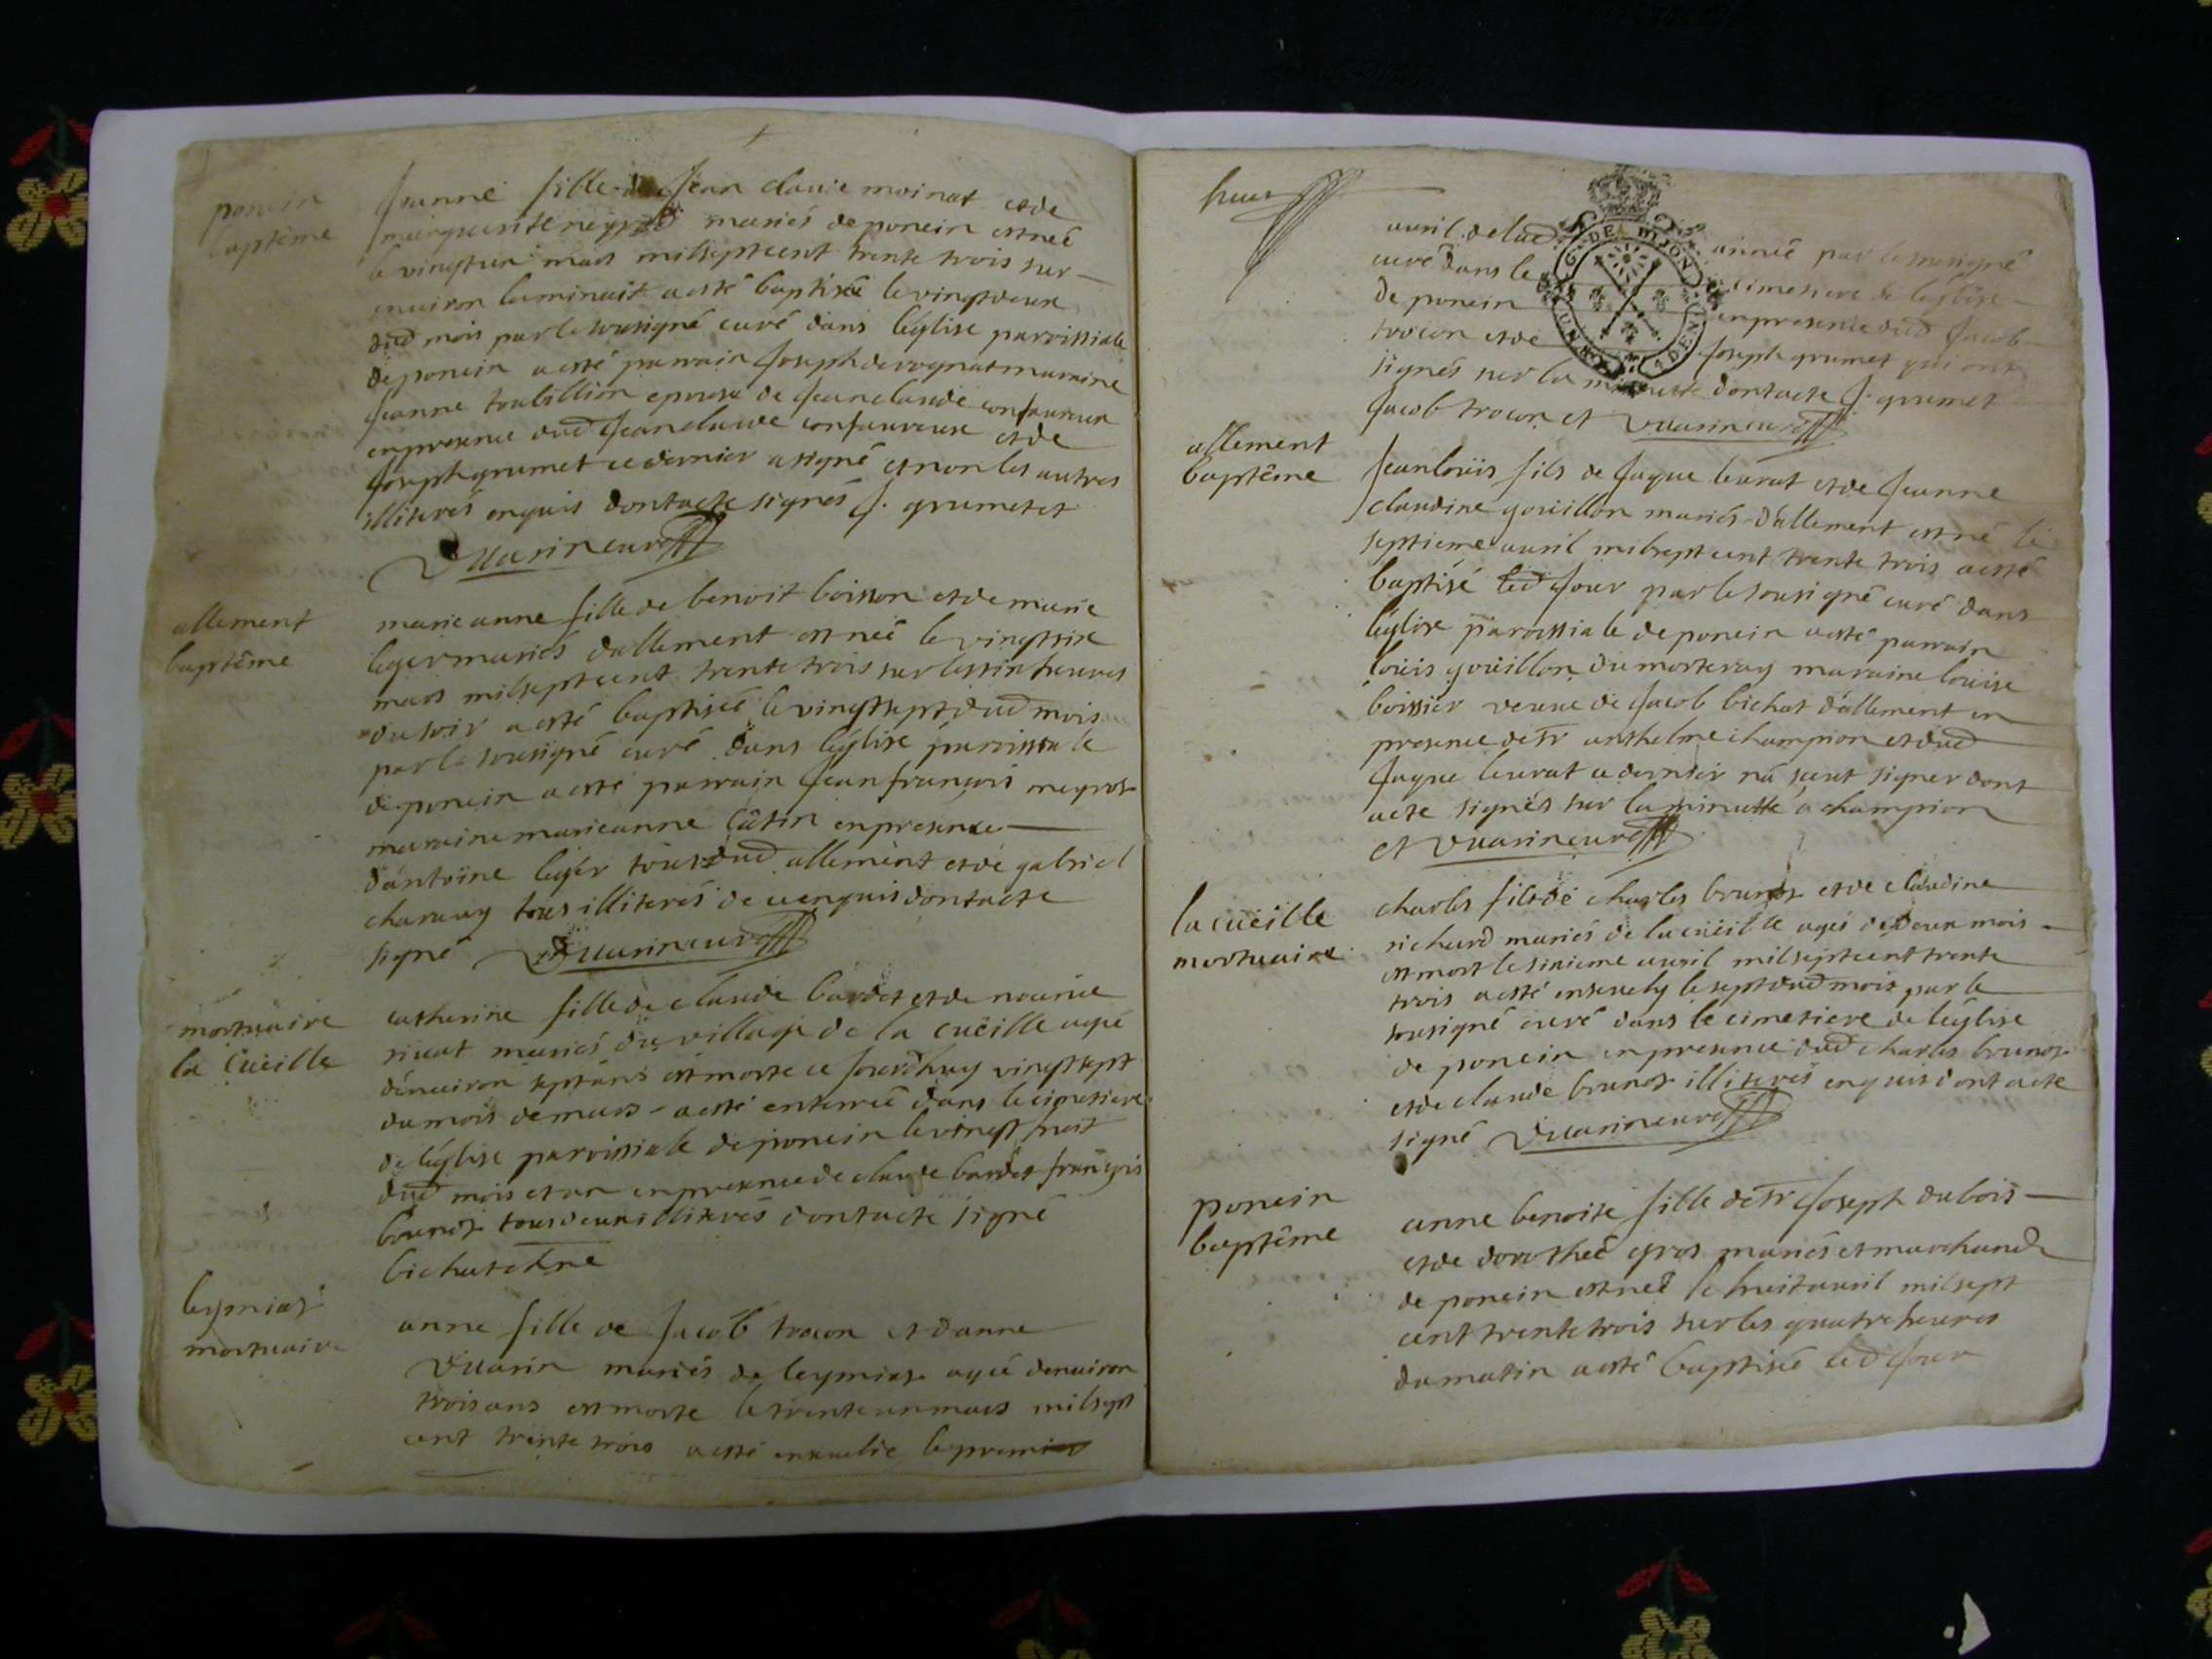 poncin
baptême
Jeanne fille de Jean claude moinat et de
marguerite neyrod mariés de poncin est née
le vingt un mars mil sept cent trente trois sur
environ la minuit a esté baptisée le vingt deux
dud mois par le sousigné curé dans léglise paroissiale
de poncin a esté parrain Joseph derognat marraine
Jeanne toubillion epouse de Jean claude confavreux
en presence dud Jean claude confavreux et de
Joseph grumet ce dernier a signé et non les autres
illiterés enquis dont acte signés J. grumet et
Vuarin curé
allement
baptême
marie anne fille de benoit boisson et de marie
leger mariés dallement est née le vingt six
mars mil sept cent trente trois sur les six heures
du soir a esté baptisée le vingt sept dud mois
par le sousigné curé dans léglise paroissiale
de poncin a esté parrain Jean françois neyrot
maraine marie anne Câtin en presence
dantoine leger tous dud allement et de gabriel
charvay tous illiterés de ce enquis dont acte
signé Vuarin curé
mortuaire
la Cüeille
catherine fille de claude bardet et de
rivat mariés du village de la cüeille agée
denviron sept ans est morte ce Jourdhuy vingt sept
du mois de mars a esté enterrée dans le cimetiere
de léglise paroissiale de poncin le vingt huit
dud mois et an en presence de claude bardet françois
brunet tous deux illiterés dont acte signé
bichat
leymiat
mortuaire
anne fille de Jacob trocon et danne
Vuarin mariés de leymiat agée denviron
trois ans est morte le trente un mars mil sept
cent trente trois a esté ensevelie le premier
huit
avril de lad année par le sousigné
curé dans le cimetiere de léglise
de poncin en presence dud Jacob
trocon et de Joseph grumet qui ont
signés sur la minutte dont acte J. grumet
Jacob trocon et Vuarin curé
G DE DIJON
allement
baptême
Jean loüis fils de Jaque levrat et de Jeanne
claudine goüillon mariés dallement est né le
septieme avril mil sept cent trente trois a esté
baptisé led Jour par le sousigné curé dans
léglise paroissiale de poncin a esté parrain
loüis goüillon du morteray maraine loüise
boissier veuve de Jacob bichat dallement en
presence de Sr anthelme champion et dud
Jaque levrat ce dernier na sceut signer dont
acte signés sur la minutte a champion
et Vuarin curé
la cüeille
mortuaire
charles fils de charles brunet et de claudine
richard mariés de la cüeille agés de deux mois
est mort le sixieme avril mil sept cent trente
trois a esté ensevely le sept dud mois par le
sousigné curé dans le cimetiere de léglise
de poncin en presence dud charles brunet
et de claude brunet illiterés enquis dont acte
signé Vuarin curé
poncin
baptême
anne benoite fille de Sr Josept dubois
et de dorothée gros mariés et marchands
de poncin est née le huit avril mil sept
cent trente trois sur les quatre heures
du matin a esté baptisée led Jour